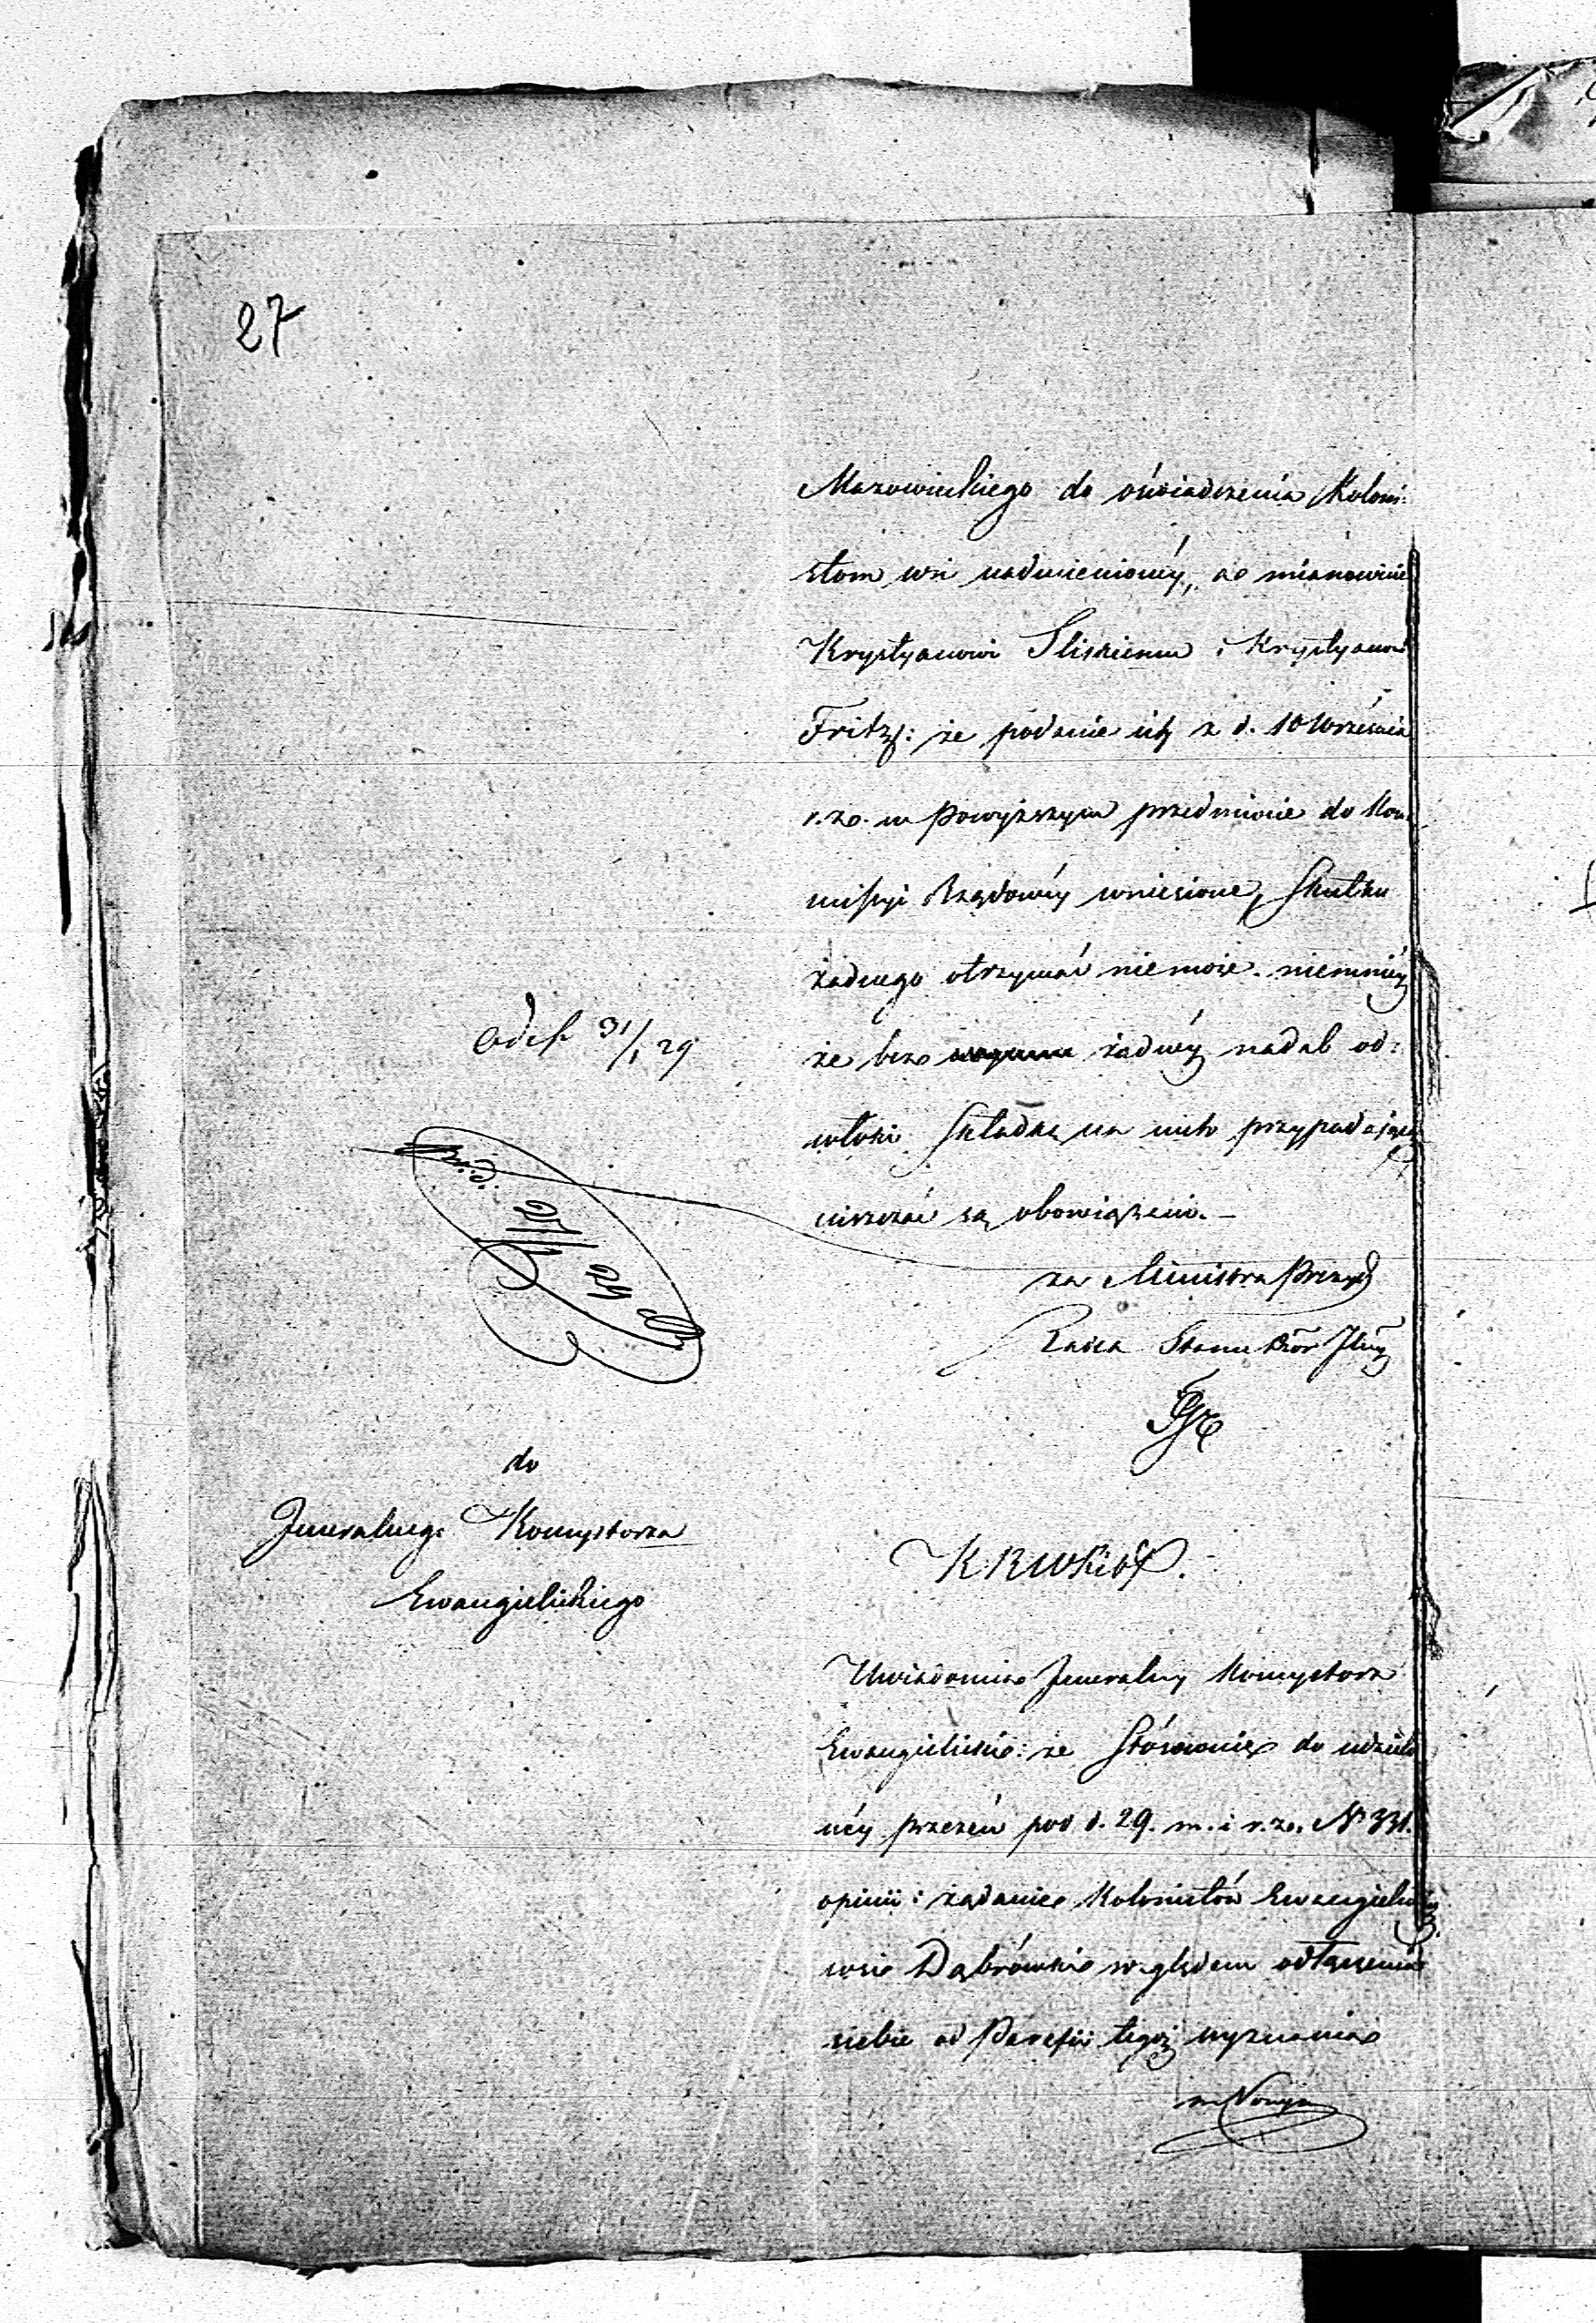 27
Mazowieckiego do oświadczenia Koloni:
stom wsi nadmienionéy, a mianowicie
Krystyanowi Sliskiemu i Krystyanowi
Fritz: że podanie ich z d. 10 Września
r. z. w powyższym przedmiocie do Kom
missyi Rządowéy wniesione, skutku
żadnego otrzymać niemoże. niemniéy
że bez żadnéy nadal od:
włoki składkę na nich przypadającą
uiszczać są obowiązani. –
za Ministra Prezyd
Radca Stanu Dÿr Jlny
Odesł 31/1 29
do
Jeneralnego Konsystorza
Ewangielickiego
K. R. W. R. i O. P.
Uwiadomia Jeneralny Konsystorz
Ewangielicki: że stósownie do udzielo
néy przezeń pod d. 29. m. i r. z. Nr 331.
opinii: żądanie Kolonistów Ewangielickich
wsi Dąbrówki względem odłączenia
siebie od Parafii tegoż wyznania
w Nowym